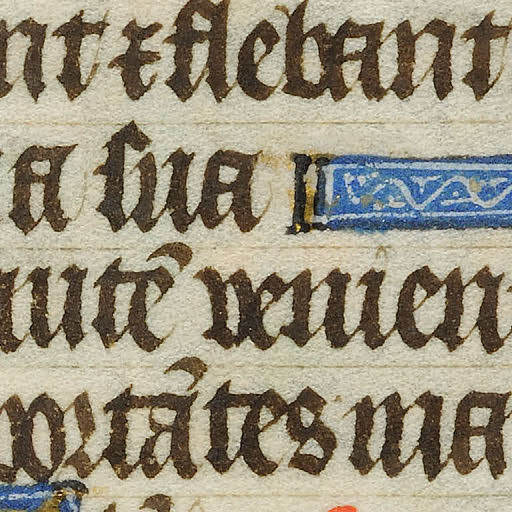 nt ⁊ flebant
a sua
autē venien
portātes ma